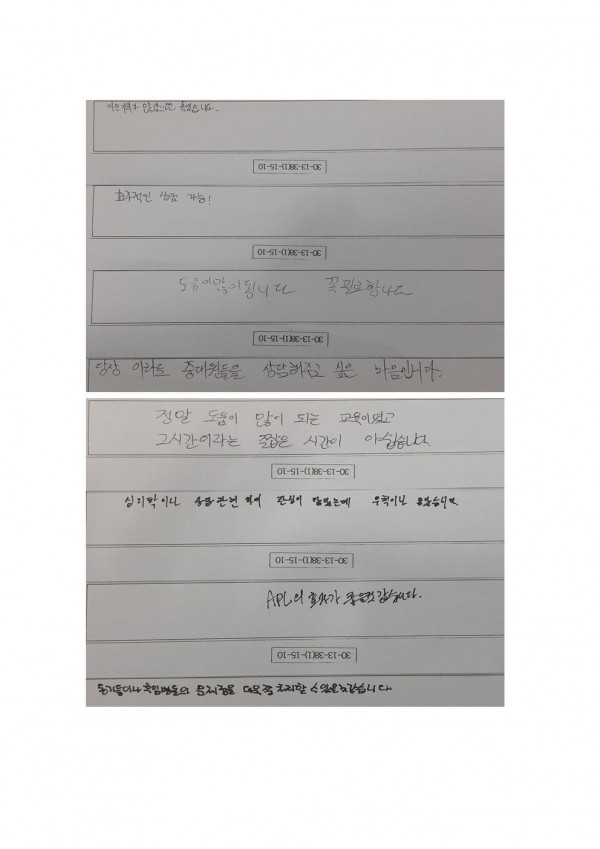 않았으므로 좋았습니다.
30-13-38(1)-15-10
효과적인 상담 가능!
30-13-38(1)-15-10
도움이많이됩니다 꼭필요합니다
30-13-38(1)-15-10
당장 이라도 중대원들을 상담해주고 싶은 마음입니다.
정말 도움이 많이 되는 교육이었고
그시간이라는 짧은 시간이 아쉽습니다.
30-13-38(1)-15-10
심리학이나 상담관련 관심이 많았는데
30-13-38(1)-15-10
APL의 효과가 좋은것같습니다.
30-13-38(1)-15-10
동기들이나 후임병들의 문제점을 더욱 잘 처리할 수있을것같습니다.